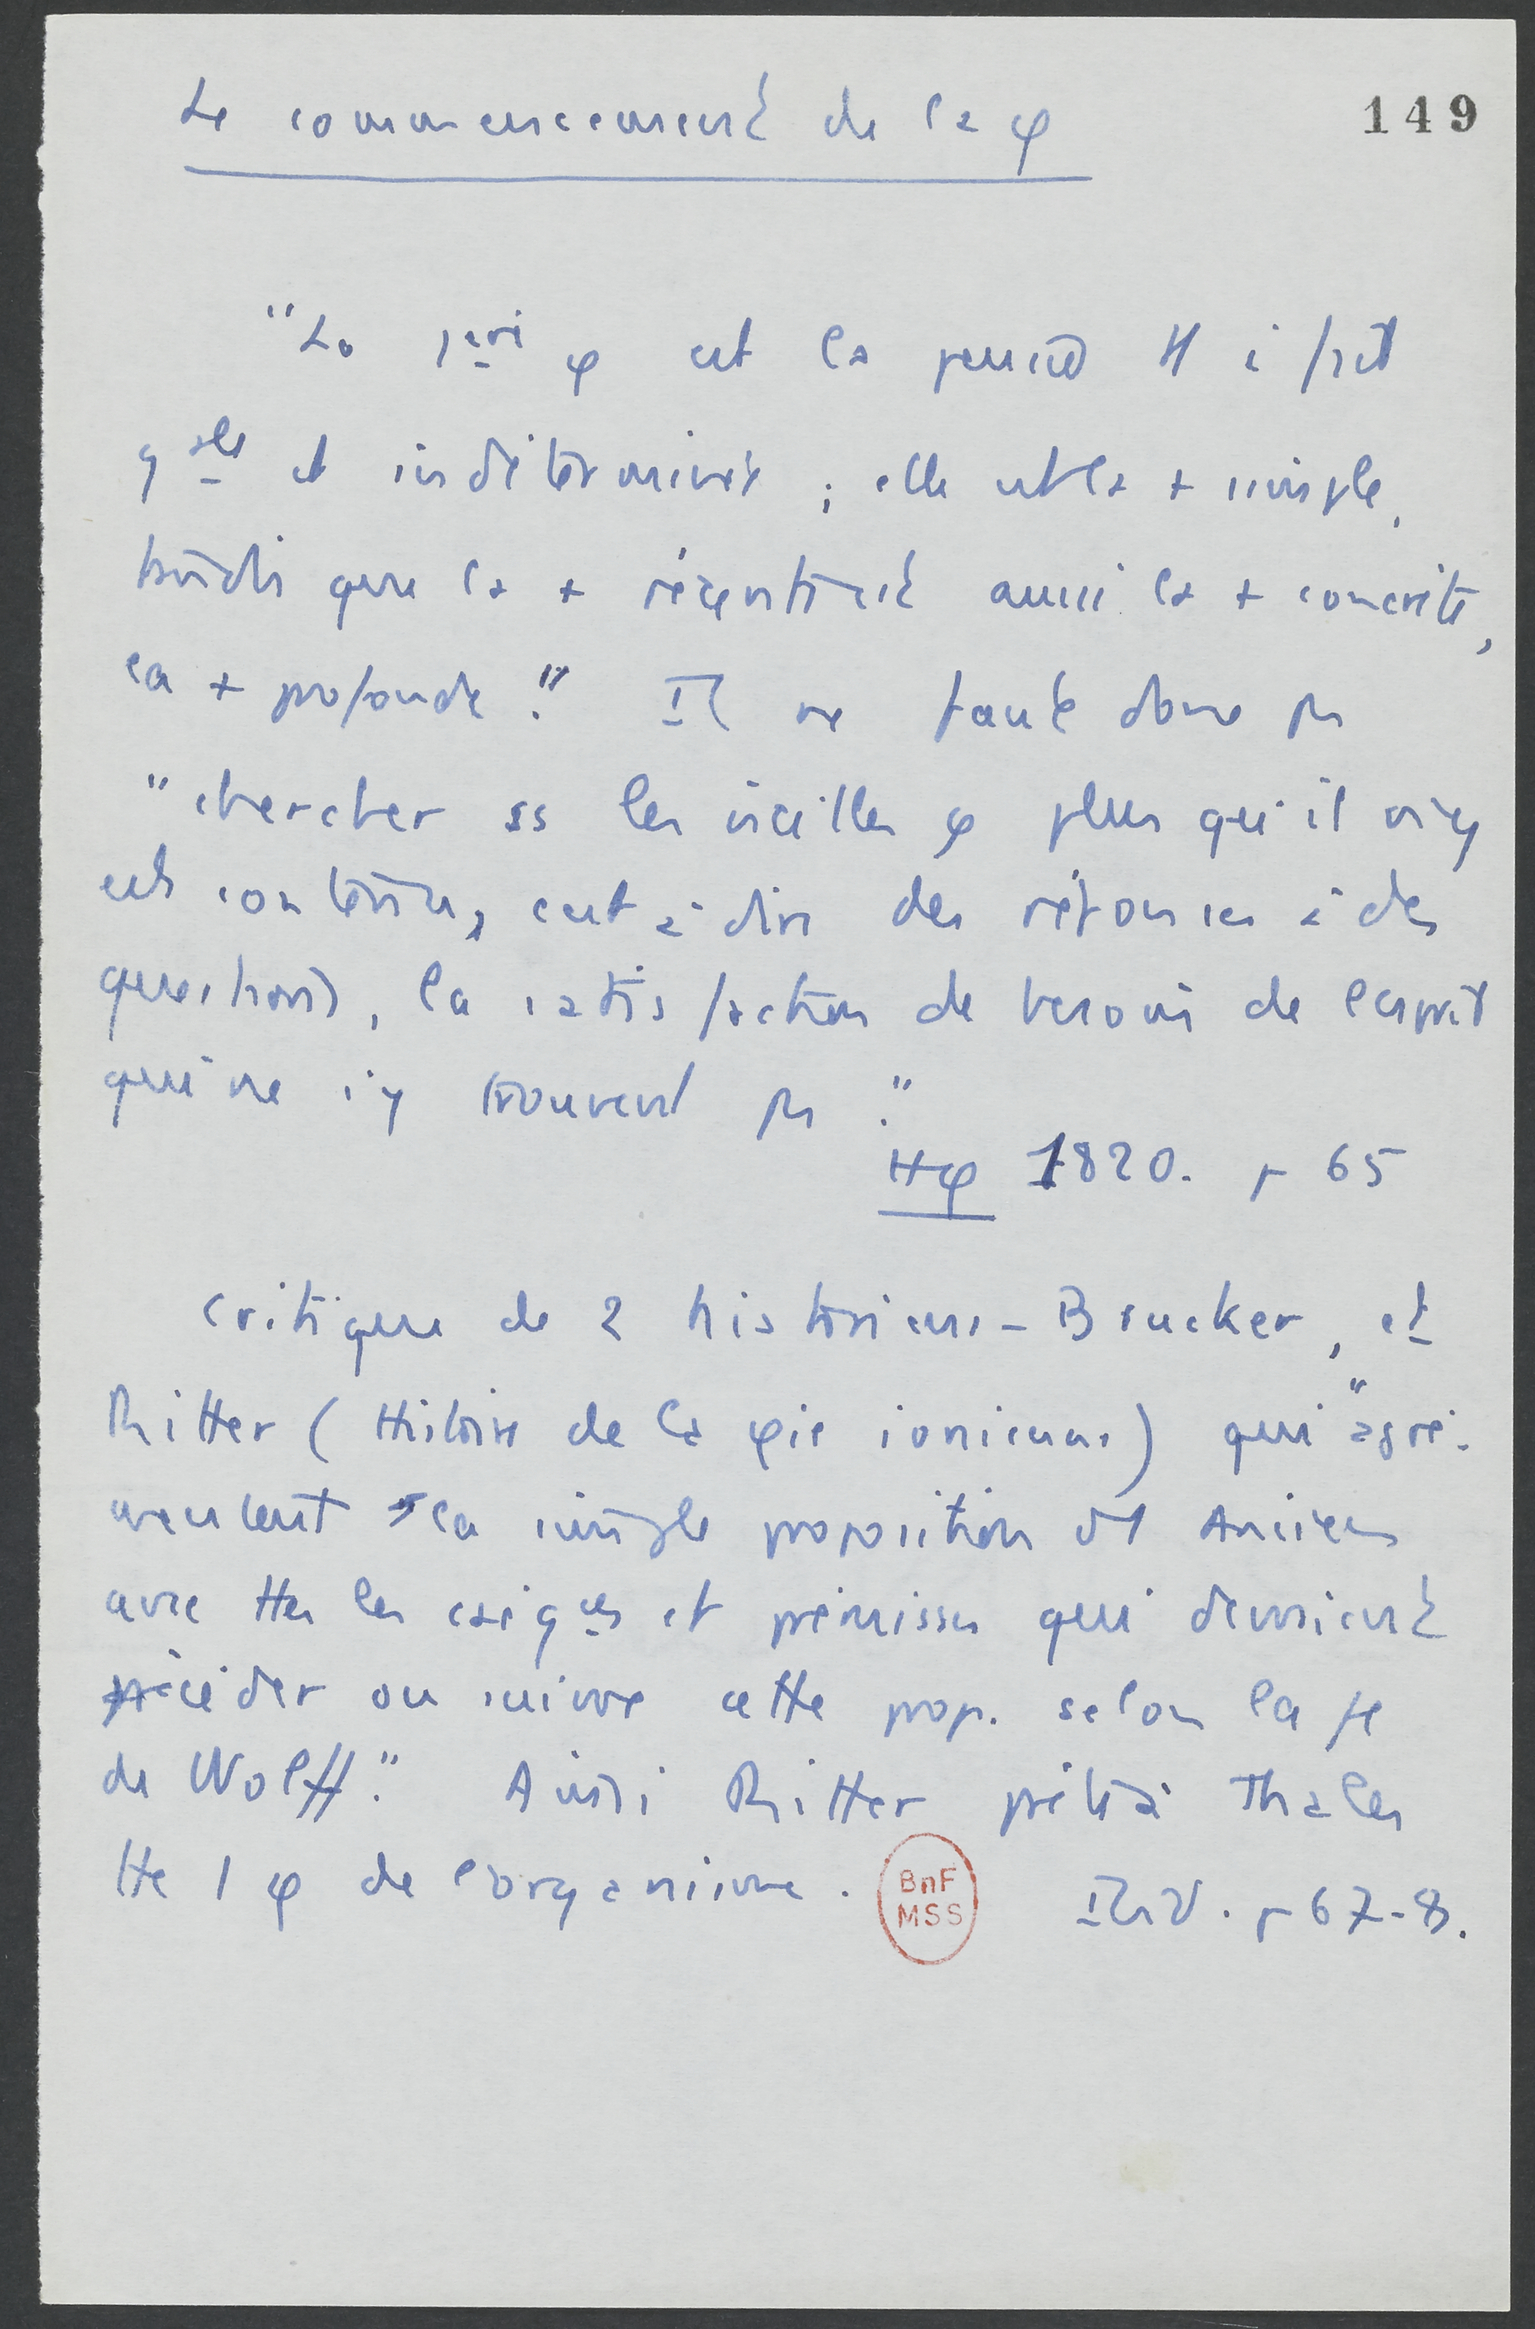 149
Le commencement de la φ
"La 1ère φ est la pensée tt à fait
gale et indéterminée ; elle est la + simple,
tandis que la + récente est aussi la + concrète,
la + profonde." Il ne faut donc ps
"chercher ss les vieilles φ plus qu'il n'y
est contenu, c'est à dire des réponses à des
questions, la satisfaction de besoins de l'esprit
qui ne s'y trouvent ps."
Hφ 1820. p 65
Critique de 2 historiens - Brucker, et
Ritter (Histoire de la φie ionienne) qui "agré-
mentent la simple proposition d'1 Ancien
avec ttes les conséques et prémisses qui devraient
précéder ou suivre cette prop. selon la φ
de Wolff." Ainsi Ritter prête à Thalès
tte 1 φ de l'organisme.
Ibid. p 67-8.
BnF
MSS